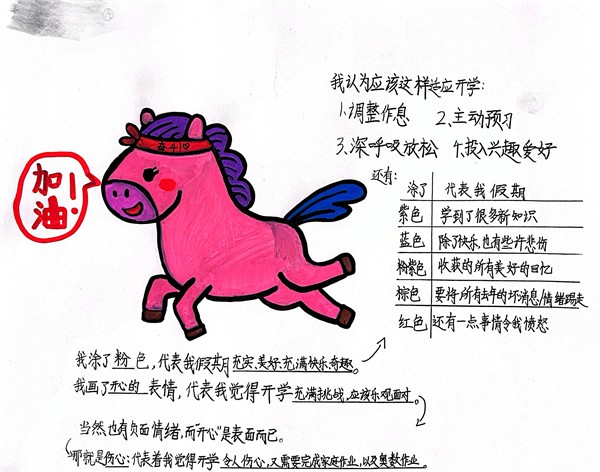 我认为应该这样适应开学:
1.调整作息 2.主动预习
3.深呼吸放松 4.投入兴趣爱好
还有:
涂了 代表我假期
紫色 学到了很多新知识
蓝色 除了快乐,也有些许悲伤
粉紫色 收获的所有美好的回忆
棕色 要将所有去年的坏消息/情绪踢走
红色 还有一点事情令我愤怒
奋斗
加油!
我涂了粉色,代表我假期充实、美好、充满快乐、奇趣。
我画了开心的表情,代表我觉得开学充满挑战,应该乐观面对。
当然也有负面情绪,而“开心”是表面而已。
那就是伤心:代表着我觉得开学令人伤心,又需要完成家庭作业,以及奥数作业。